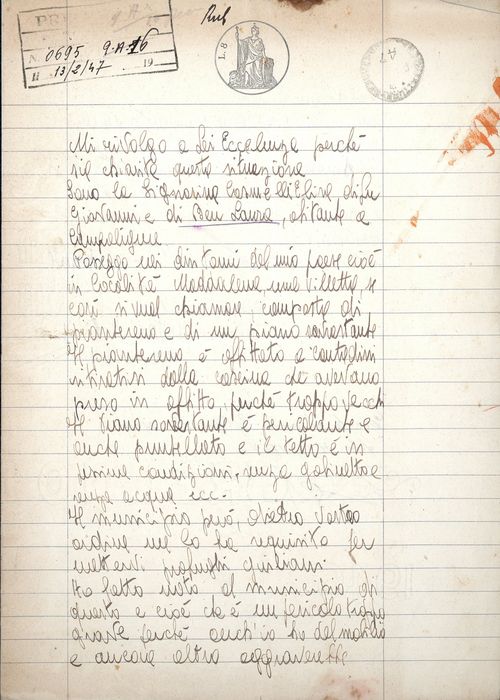 Rub
PRE
N. 0695 9-A-16
li 13/2/47 19
L. 8
47
Mi rivolgo a Lei Eccelenza perché
sia chiarita questa situazione
Sono la Signorina Elisa di fu
Giovanni e di Ben Laura, abitante a
Campoligure
Posseggo nei dintorni del mio paese cioè
in località Maddalena una villetta, se
così si vuol chiamare, composta di
pianterreno e di un piano sovrastante
Il pianterreno, è affittato a contadini
ritiratisi dalla cascina che avevano
preso in affitto, perché troppo vecchi
Il piano sovrastante è pericolante e
anche puntellato e il tetto è in
pessime condizioni, senza gabinetto e
senza acqua ecc.-
Il municipio però, dietro Vostro
ordine me lo ha requisito per
mettervi profughi giuliani.
Ho fatto noto al municipio di
questo e cioè che è un pericolo troppo
grave perché anch'io ho del mobilio
e ancora altro